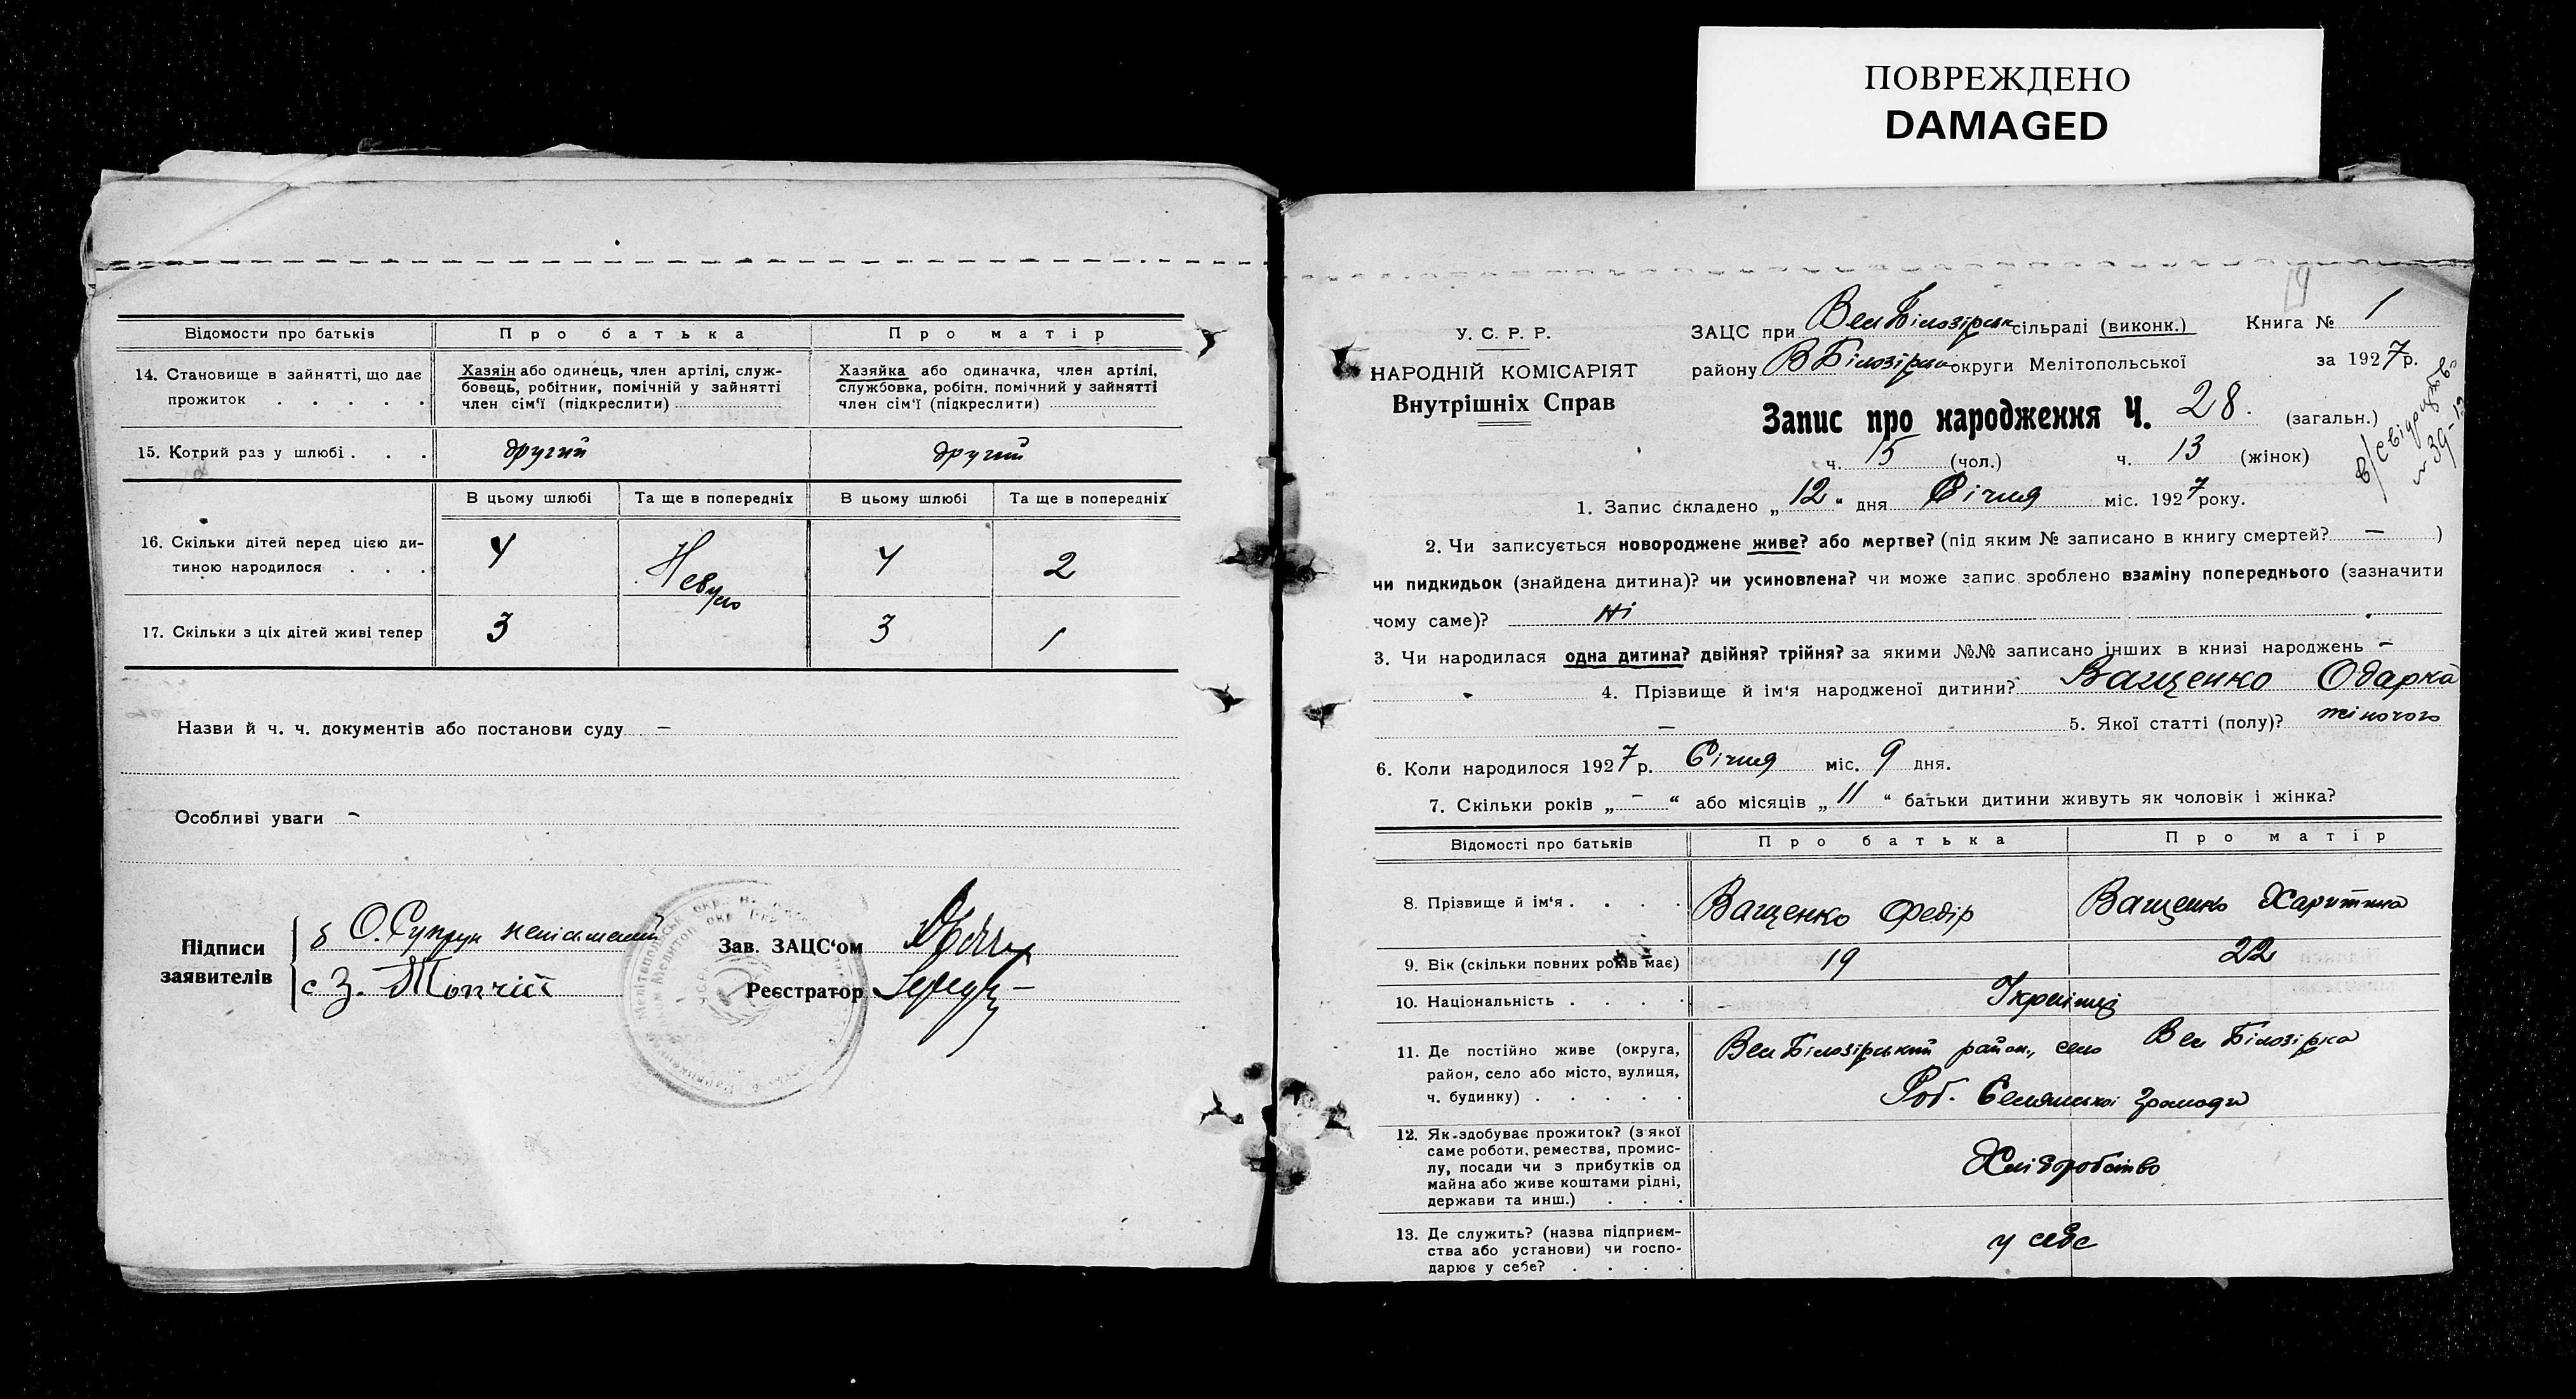 ПОВРЕЖДЕНО
DAMAGED
Відомости про батьків Про батька Про матір
14. Становище в зайнятті, що дає прожиток . . . . .
Хазяін або одинець, член артілі, служ-
бовець, робітник, помічній у зайнятті
член сім'ї (підкреслити)
Хазяйка або одиначка, член артілі,
службовка, робітн. помічний у зайнятті
член сім'ї (підкреслити)
15. Котрий раз у шлюбі . . . другий другий
В цьому шлюбі Та ще в попередніх В цьому шлюбі Та ще в попередніх
16. Скільки дітей перед цією ди-
тиною народилося . . . 4 Небуло 4 2
17. Скільки з ціх дітей живі тепер 3 3 1
Назви й ч. ч. документів або постанови суду —
Особливі уваги –
Підписи
заявителів
б О. Супрун
с З.
Зав. ЗАЦС'ом
Реєстратор
У. С. Р. Р.
НАРОДНІЙ КОМІСАРІЯТ
Внутрішніх Справ
ЗАЦС при Вел Білозірськ сільраді (виконк.) Книга № 1
району В Білозірськ округи Мелітопольської за 1927 р.
Запис про народження Ч. 28. (загальн.)
ч. 15 (чол.) ч. 13 (жінок)
1. Запис складено „12" дня Січня міс. 1927 року.
2. Чи записується новороджене живе? або мертве? (під яким № записано в книгу смертей? — )
чи пидкидьок (знайдена дитина)? чи усиновлена? чи може запис зроблено взаміну попереднього (зазначити
чому саме)? Ні
3. Чи народилася одна дитина? двійня? трійня? за якими №№ записано інших в книзі народжень –
4. Прізвище й ім'я народженої дитини? Ващенко Одарка
— 5. Якої статті (полу)? жіночого
6. Коли народилося 1927 р. Січня міс. 9 дня.
7. Скільки років „–" або місяців „11" батьки дитини живуть як чоловік і жінка?
Відомості про батьків Про батька Про матір
8. Прізвище й ім'я . . . . Ващенко Федір Ващенко Харитина
9. Вік (скільки повних років має) 19 22
10. Національність . . . . Українці
11. Де постійно живе (округа,
район, село або місто, вулиця,
ч. будинку) . . . . .
Вел Білозірський район., село Вел Білозірка
Роб. Селянської громади
12. Як здобуває прожиток? (з якої
саме роботи, ремества, промис-
лу, посади чи з прибутків од
майна або живе коштами рідні,
держави та инш.) . . .
Хліборобство
13. Де служить? (назва підприєм-
ства або установи) чи госпо-
дарює у себе? . . . .
у себе